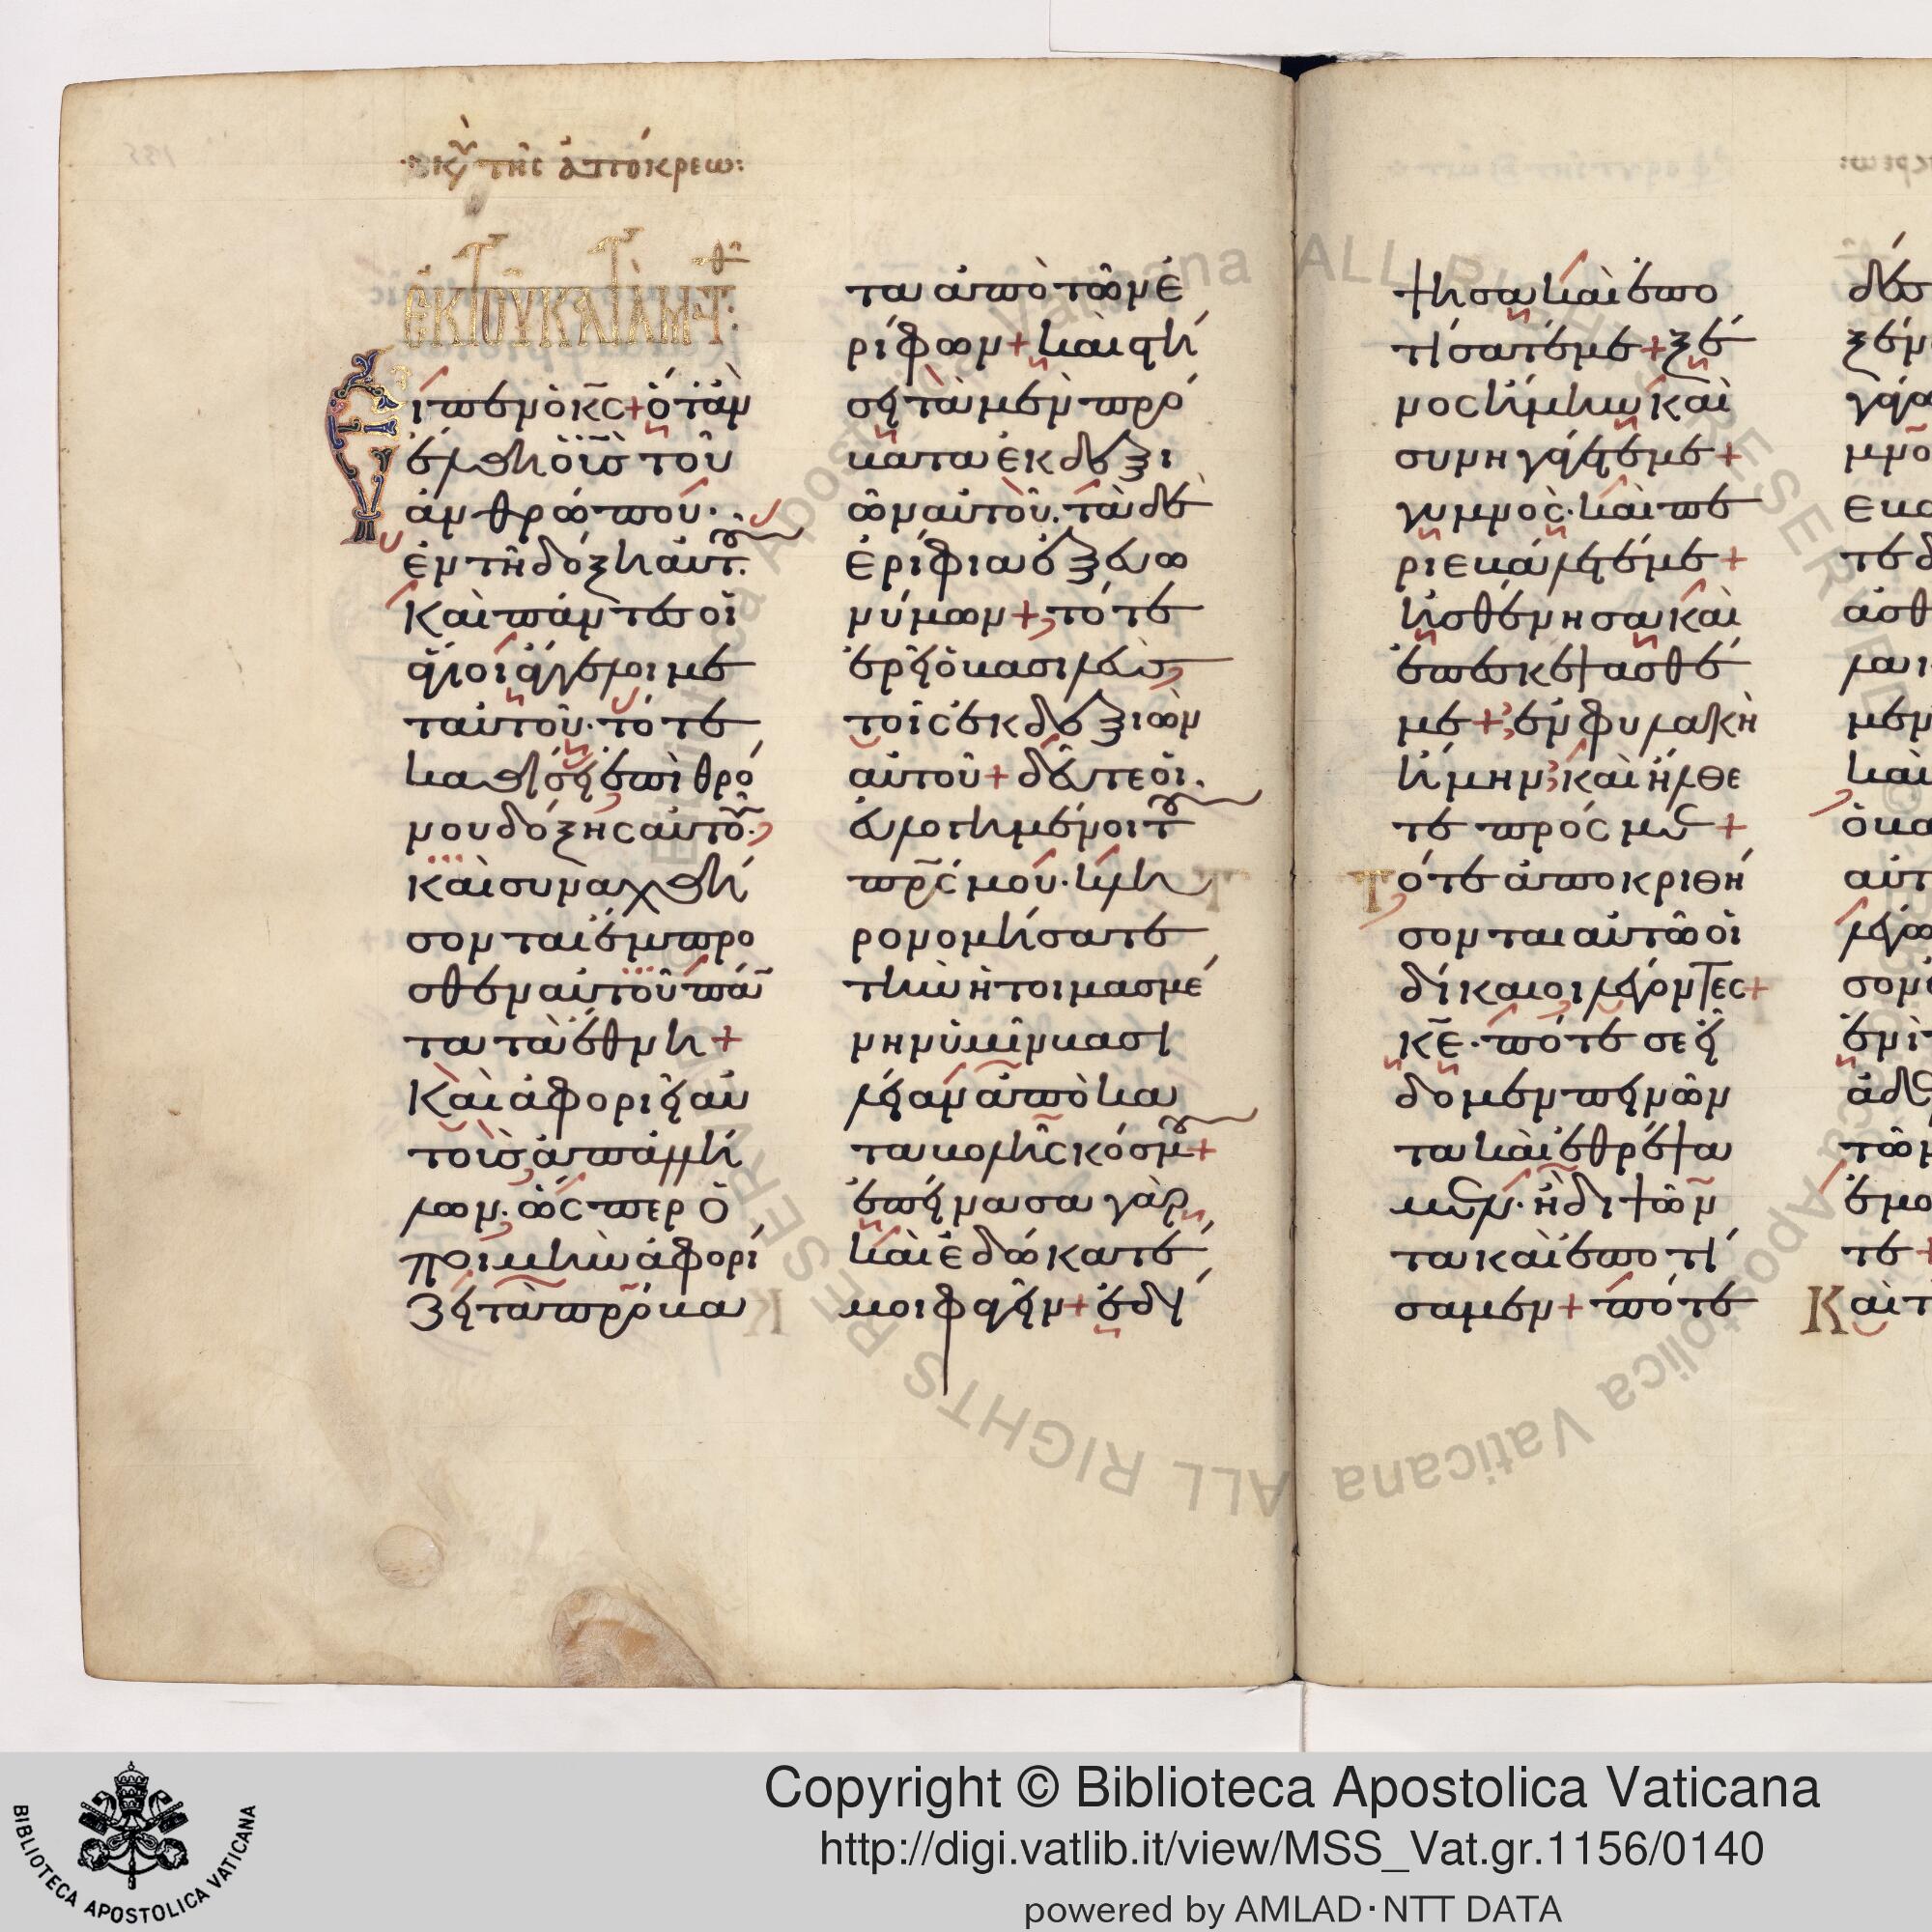 κυ τῆς ἀπόκρεω:
ἐκ τοῦ κατὰ Ματθ:
Εἶπεν ὁ κς + ὅταν
ἔλθη ὁ ϊς τοῦ
ἀνθρώπου·
ἐν τῆ δόξη αὐτ.
Καὶ πάντες οἱ
ἅγιοι ἄγγελοι με
τ αὐτοῦ· τότε
καθίσει ἐπὶ θρό
νου δόξης αὐτο·
καὶ συναχθή
σονται ἔμπρο
σθεν αὐτοῦ πά
τα τὰ ἔθνη +
Καὶ ἀφοριεῖ αὐ
τοὺς ἀπ ἀλλή
λων· ὥσπερ ὁ
ποιμὴν ἀφορί
ζει τὰ πρόβα
τα ἀπὸ τῶν ἐ
ρίφων + καὶ στή
σει τὰ μὲν πρό
βατα ἐκ δεξι
ῶν αὐτοῦ. τὰ δὲ
ἐρίφια ἐξ εὐω
νύμων + τότε
ἐρεῖ ὁ βασιλεὺς
τοῖς ἐκ δεξιῶν
αὐτοῦ + δεῦτε οἱ
εὐλογημένοι τ
πρς μου· κλη
ρονομήσατε
τὴν ἡτοιμασμέ
νην ὑμῖν βασι
λείαν ἀπὸ κα
ταβολῆς κόσμ +
ἐπείνασα γὰρ,
καὶ ἐδώκατέ
μοι φαγεῖν + ἐδί
ψησα καὶ ἐπο
τίσατέ με + ξέ
νος ἤμην καὶ
συνηγάγετέ με +
γυμνὸς· καὶ πε
ριεβάλετέ με +
ἠσθένησα καὶ
ἐπεσκέψασθέ
με + ἐν φυλακῆ
ἤμην καὶ ἤλθε
τε πρός με +
Τότε ἀποκριθή
σονται αὐτῶ οἱ
δίκαιοι λέγοντες +
κε· πότε σε εἴ
δομεν πεινῶν
τα καὶ ἐθρέψα
μεν· ἢ διψῶν
τα καὶ ἐποτί
σαμεν + πότε
BIBLIOTECA APOSTOLICA VATICANA
Copyright © Biblioteca Apostolica Vaticana
http://digi.vatlib.it/view/MSS_Vat.gr.1156/0140
powered by AMLAD·NTT DATA